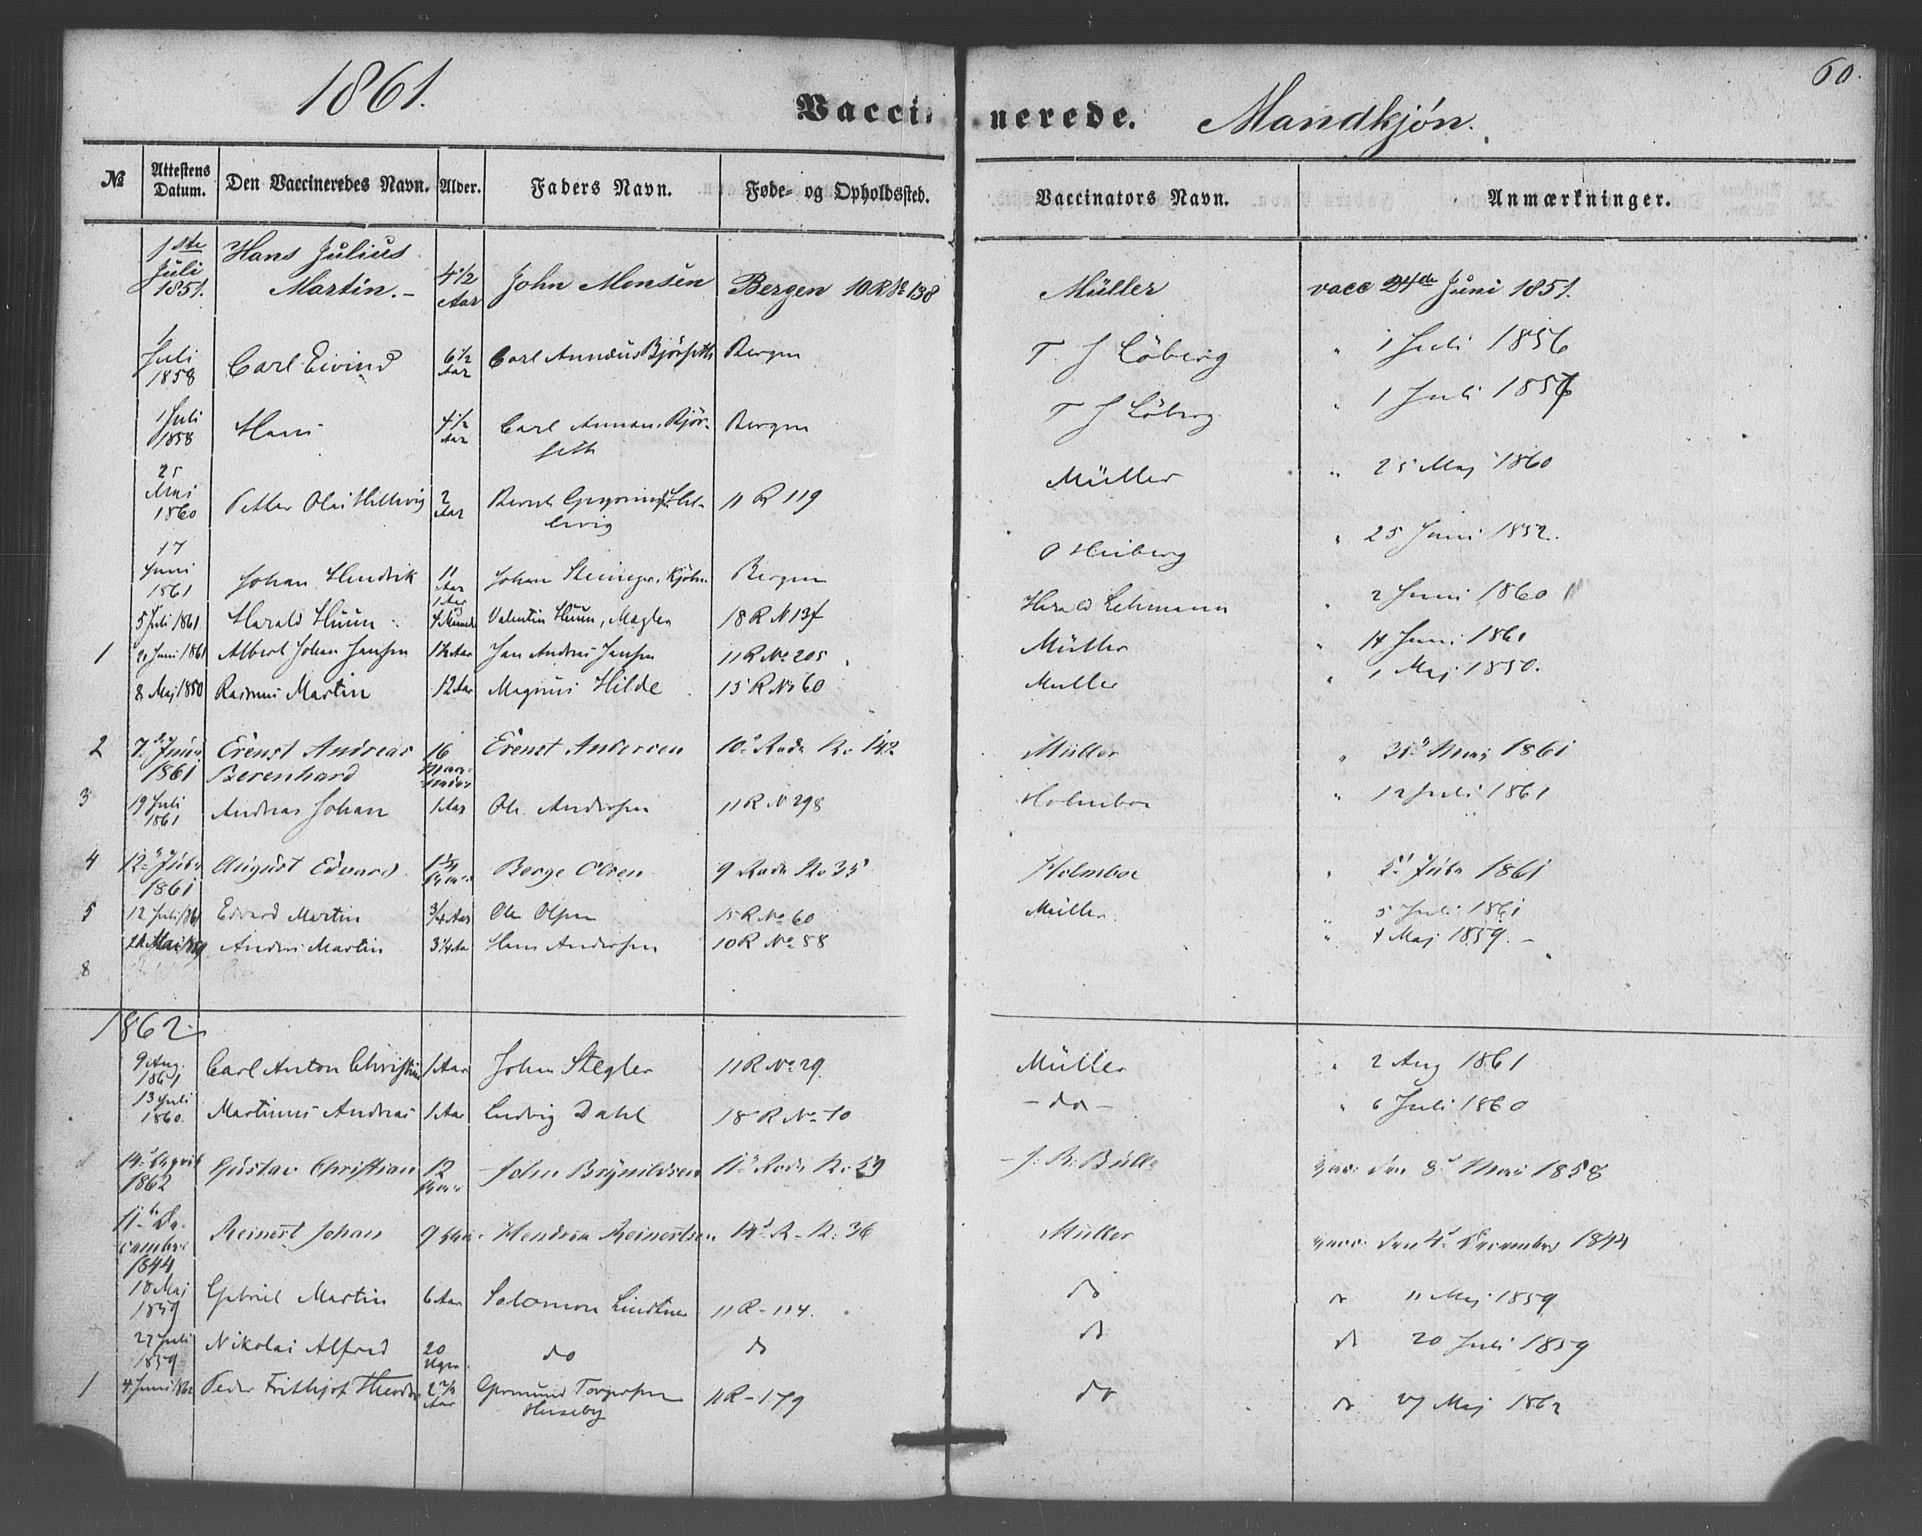 1861.
60.
Vaccinerede. Mandkjøn.
№ Attestens Datum. Den Vaccineredes Navn. Alder. Faders Navn. Føde- og Opholdssted. Vaccinators Navn. Anmærkninger.
1ste Juli 1851. Hans Julius Martin.- 4 1/2 Aar John Monsen Bergen 10 R № 138 Müller vacc 24de Juni 1851.
1 Juli 1858 Carl Eivind 6 1/2 Aar Carl Bjørseth Bergen T. J Löberg " 1 Juli 1856
1 Juli 1858 Hans 4 1/2 Aar Carl Bjørseth Bergen T J Löberg " 1 Juli
25 Mai 1860 Petter Olai Helluvig 2 Aar Bernt 11 R 119 Müller " 25 Maj 1860
17 Juni 1861 Johan Hendrik 11 Aar Johan Bergen O Heiberg " 25 Juni 1852.
5 Juli 1861 Harald Huun 1 Aar Valentin Huun, Mægler 18 R N 137 Herald Lehmann " 2 Juni 1860
1 21 Juni 1861 Albert Johan Jansen 1 1/2 Aar Jan Andreas Jansen 11 R No 205 Müller " 14 Juni 1861
8 Maj 1850 Rasmus Martin 12 Aar Magnus Hilde 15 R No 60 Muller " 1 Maj 1850.
2 7de Juni 1861 Erenst Andreas Berenhard 16 Erenst Andersen 10. Rode No 142 Müller " 31. Mai 1861
3 19 Juli 1861 Andreas Johan 1 Aar Ole Andersen 11 R N 298 Holmboe " 12 Juli 1861
4 12. 1861 August Edvard Berge Olsen 9 Rode No 35 Holmboe " 5. 1861
5 12 Juli 1861 Edvard Martin 3/4 Aar Ole Olsen 15 R No 60 Müller " 5 Juli 1861
Mai 1859 Anders Martin 3 1/4 Aar Hans Andersen 10 R No 88 " 4 Maj 1859.-
8
1862
9 Aug. 1861 Carl Anton Christian 1 Aar John Stegler 11 R No 29 Müller " 2 Aug 1861
13 Juli 1860. Martinus Andreas 1 Aar Ludvig Dahl 18 R No 10 - do - " 6 Juli 1860
14. 1862 Gustav Christian 12 John Brynildsen 11. Rode No 59 J. R. Büll vac. den 8. Mai 1858
11te December 1844 Reinert Johan 9 Hendrik Reinertsen 14. R- N. 36 Müller vacc. den 4. December 1844
18 Maj 1859 Gabriel Martin 6 Aar Solomon Lindtner 11 R-114. do do 11 Maj 1859
27 Juli 1859 Nikolai Alfred 20 Uger do do do do 20 Juli 1859
1 4 Juni 1862 Peder Frithjof Theodor 2 Aar Gudmund Torgersen Huseby 11 R-179 do do 27 Maj 1862